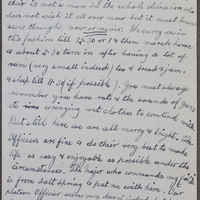 their is not a man in the whole division who
does not wish it all over now but it must be
seen through now or never. We carry on in
this fashion till 12-30 or 1 & then march home
& about 2-30 turn in after having a tot of
rum (very small indeed) tea & bread & jam
& sleep till 11 if possible). You must always
remember you have rats & the sounds of guns
to
But still here we are all merry & bright. The
Officers are fine & do their very best to make
life as easy & enjoyable as possible under the
circumstances. The major who commands my
is from Salt Spring & put me with him. Our
platoon Officer